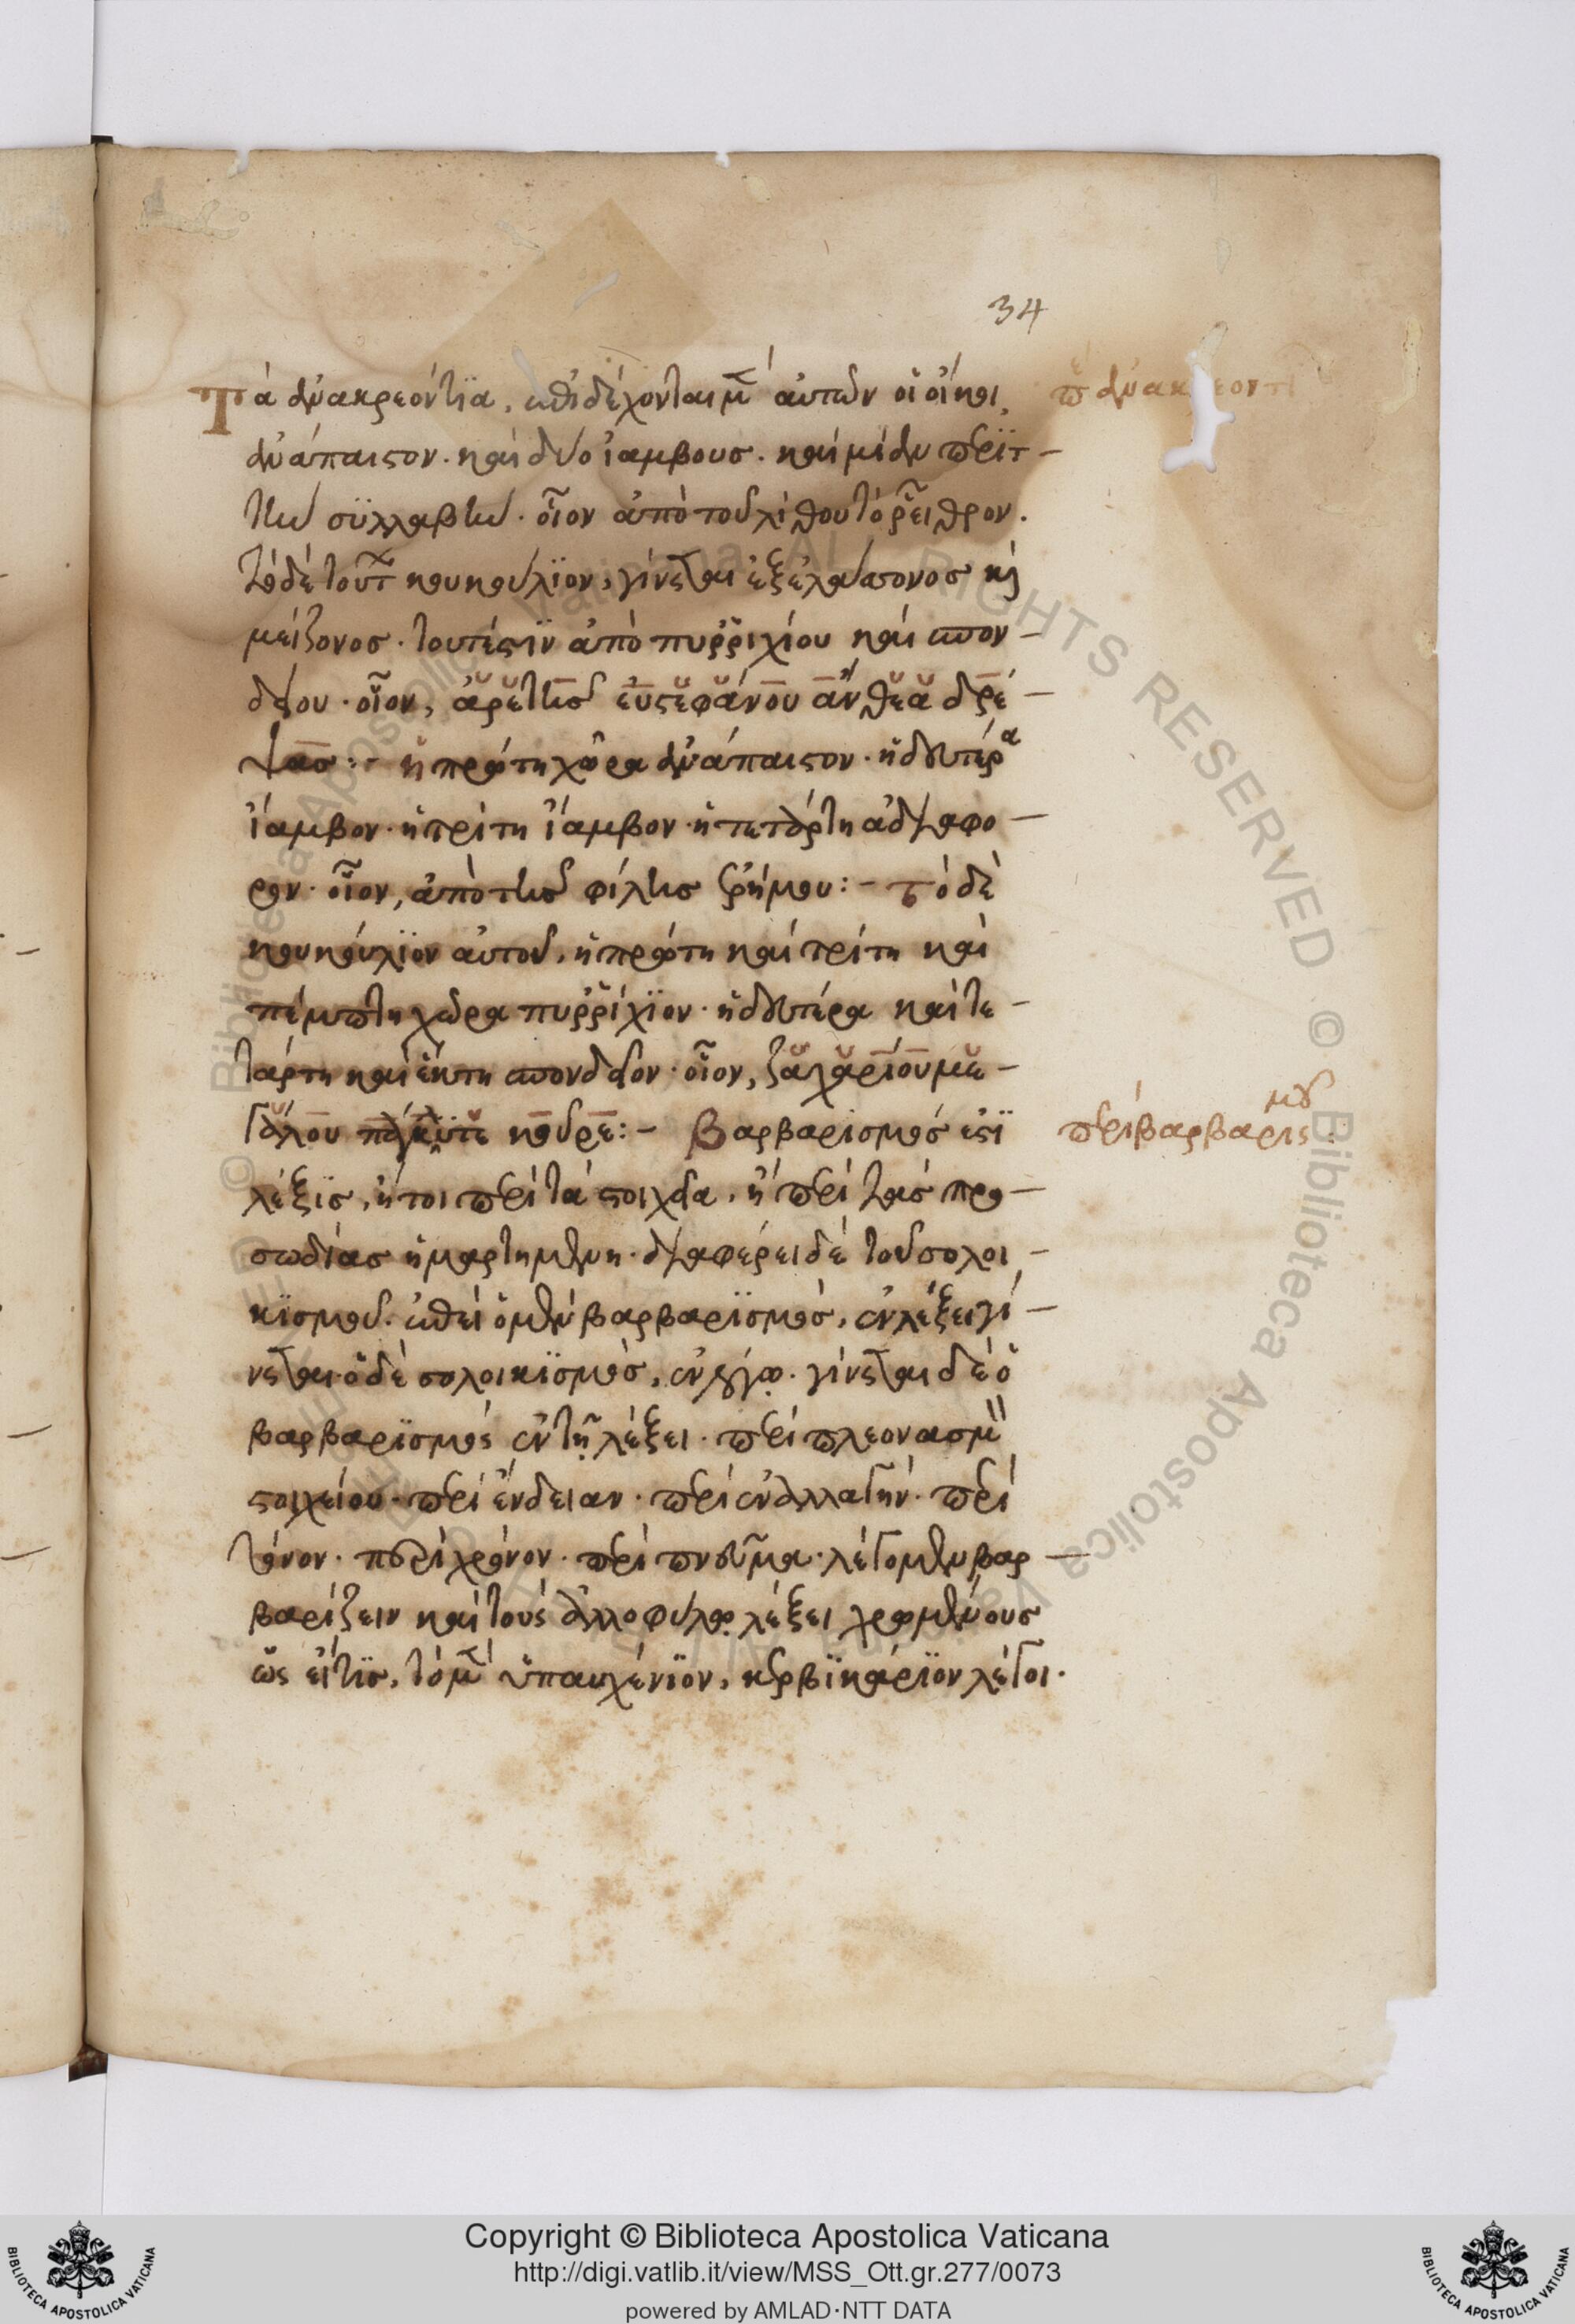 34
Τὰ ἀνακρεόντϊα, ἐπιδέχονται μ(ὲν) αὐτῶν οἱ οἶκοι,
ἀνάπαιστον· καὶ δύο ἰάμβους· καὶ μίαν περϊτ-
τὴν σϋλλαβὴν· οἷον ἀπὸ τοῦ λίθου τὸ ῥεῖθρον.
τὸ δὲ τούτ κουκούλϊον, γίνεται ἐξ ἐλάσσονος κ(αὶ)
μείζονος· τουτέστϊν ἀπὸ πυῤῥιχίου καὶ σπον-
δείου· οἷον, ἀρετῆς εὐστεφάνου ἄνθεα δρέ-
ψας:- ἡ πρώτη χώρα ἀνάπαιστον· ἡ δευτέρα
ἴαμβον· ἡ τρίτη ἴαμβον· ἡ τετάρτη ἀδιάφο-
ρον· οἷον, ἀπὸ τῆς φίλης ἐρήμου:- τὸ δὲ
κουκούλϊον αὐτοῦ, ἡ πρώτη καὶ τρίτη καὶ
πέμπτη χώρα πυῤῥίχϊον· ἡ δευτέρα καὶ τε-
τάρτη καὶ ἕκτη σπονδεῖον· οἷον, ζαχαρίου με-
γάλου κοῦρε:- Βαρβαρισμός ἐστϊ
περὶ βαρβαρισμοῦ
λέξϊς, ἤτοι περὶ τὰ στοιχεῖα, ἢ περὶ τὰς προ-
σωδίας ἡμαρτημένη· διαφέρει δὲ τοῦ σολοι-
κϊσμοῦ. ἐπεὶ ὁ μὲν βαρβαρϊσμός, ἐν λέξει γί-
νεται· ὁ δὲ σολοικϊσμός, ἐν λόγῳ. γίνεται δὲ ὁ
βαρβαρϊσμός ἐν τῇ λέξει· περὶ πλεονασμὸ(ν)
στοιχείου· περὶ ἔνδειαν· περὶ ἐναλλαγήν· περὶ
τόνον· περὶ χρόνον· περὶ πνεῦμα· λέγομεν βαρ-
βαρίζειν καὶ τοὺς ἀλλοφύλῳ λέξει χρωμένους
ὥς εἴ τϊς, τὸ μ(ὲν) ὑπαυχένϊον, κερβϊκάρϊον λέγοι.
Copyright © Biblioteca Apostolica Vaticana
http://digi.vatlib.it/view/MSS_Ott.gr.277/0073
powered by AMLAD·NTT DATA
BIBLIOTECA APOSTOLICA VATICANA
BIBLIOTECA APOSTOLICA VATICANA